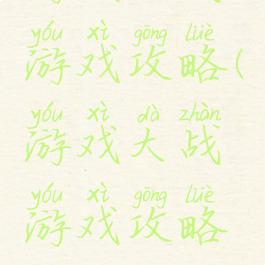 yóu xì gōng lüè
游戏攻略(
yóu xì dà zhàn
游戏大战
yóu xì gōng lüè
游戏攻略